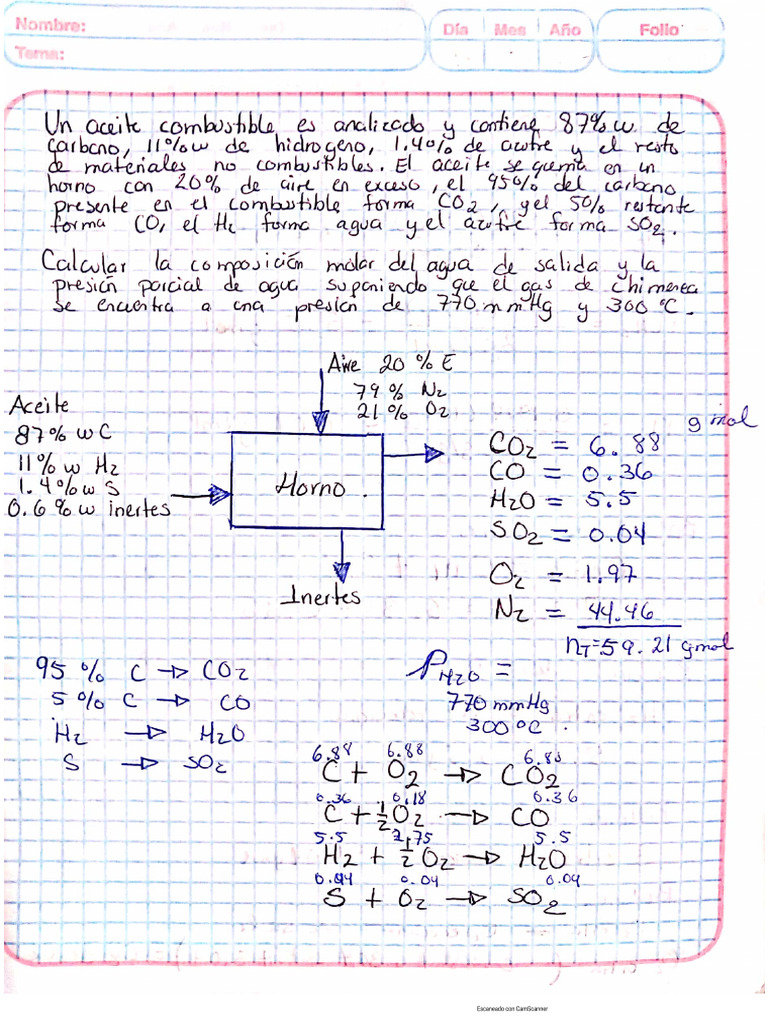 Nombre:
Tema:
Día Mes Año
Folio
Un aceite combustible es analizado y contiene 87%w. de
carbono, 11%w de hidrogeno, 1.40% de azufre y el resto
de materiales no combustibles. El aceite se quema en un
horno con 20% de aire en exceso, el 95% del carbono
presente en el combustible forma CO2, y el 5% restante
forma CO, el H2 forma agua y el azufre forma SO2.
Calcular la composición molar del agua de salida y la
presión parcial de agua suponiendo que el gas de chimenea
se encuentra a una presión de 770 mmHg y 300 °C.
Aire 20 % E
79 % N2
21 % O2
Aceite
87% w C
11% w H2
1.4% w S
0.6 % w inertes
Horno.
Inertes
g mol
CO2 = 6.88
CO = 0.36
H2O = 5.5
SO2 = 0.04
O2 = 1.97
N2 = 44.46
nT=59.21 gmol
95 % C → CO2
5 % C → CO
H2 → H2O
S → SO2
PH2O =
770 mmHg
300 °C.
6.88 6.88 6.88
C + O2 → CO2
0.36 0.18 0.36
C + 1/2 O2 → CO
5.5 2.75 5.5
H2 + 1/2 O2 → H2O
0.04 0.04 0.04
S + O2 → SO2
Escaneado con CamScanner